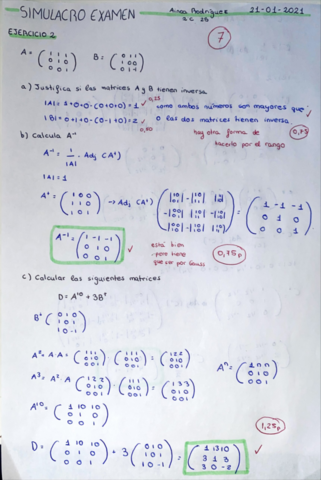 SIMULACRO EXAMEN
Ainoa Rodríguez
21-01-2021
7
EJERCICIO 2
A = (1 1 1
0 1 0
0 0 1)
B =
a) Justifica si las matrices A y B tienen inversa
|A| = 1+0+0-(0+0+0) = 1 ✓ 0,25 como ambos números son mayores que
|B| = 0+1+0-(0-1+0) = 2 ✓ 0 las dos matrices tienen inversa
hay otra forma de
hacerlo por el rango
b) Calcula A⁻¹
A⁻¹ = 1/|A| · Adj (Aᵗ)
|A| = 1
Aᵗ = (1 0 0
1 1 0
1 0 1) → Adj (Aᵗ)
(1 -1 -1
0 1 0
0 0 1)
A⁻¹ = (1 -1 -1
0 1 0
0 0 1) ✓
está bien
pero tiene
que ser por Gauss
0,75p
c) Calcular las siguientes matrices
D = A¹⁰ + 3Bᵗ
Bᵗ (0 1 0
1 0 1
1 0 -1)
A² = A·A = (1 1 1
0 1 0
0 0 1) · (1 1 1
0 1 0
0 0 1) = (1 2 2
0 1 0
0 0 1)
Aⁿ = (1 n n
0 1 0
0 0 1)
A³ = A²·A = (1 2 2
0 1 0
0 0 1) · (1 1 1
0 1 0
0 0 1) = (1 3 3
0 1 0
0 0 1)
A¹⁰ = (1 10 10
0 1 0
0 0 1)
1,25p
D = (1 10 10
0 1 0
0 0 1) + 3 (0 1 0
1 0 1
1 0 -1) = (1 13 10
3 1 3
3 0 -2) ✓